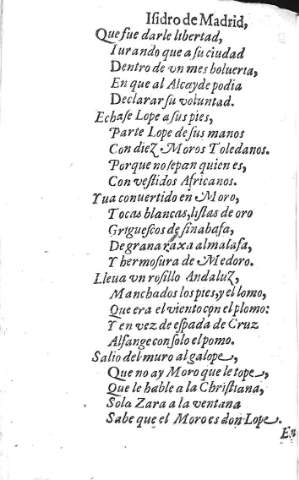 Isidro de Madrid,
Que fue darle libertad,
Iurando que a su ciudad
Dentro de vn mes boluerta,
En que al Alcayde podia
Declarar su voluntad.
Echase Lope a sus pies,
Parte Lope de sus manos
Con diez Moros Toledanos.
Porque no sepan quien es,
Con vestidos Africanos.
Yua conuertido en Moro,
Tocas blancas, listas de oro
Griguescos de sinabafa,
De grana raxa almalafa,
Y hermosura de Medoro.
Lleua vn rosillo Andaluz,
Manchados los pies, y el lomo,
Que era el viento con el plomo:
Y en vez de espada de Cruz
Alfange con solo el pomo.
Salio del muro al galope,
Que no ay Moro que le tope,
Que le hable a la Christiana,
Sola Zara a la ventana
Sabe que el Moro es don Lope.
En